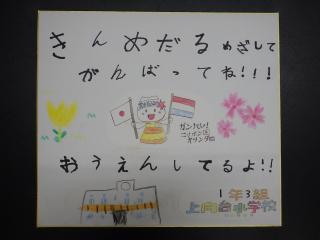 きんめだるめざして
がんばってね!!!
ガンバレ!
ニッポン&
オランダ
おうえんしてるよ!!
1年3組
上向台小学校